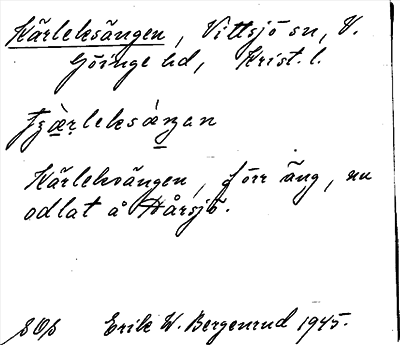 Kärleksängen, Vittsjö sn, V.
Göinge hd, Krist. l.
Kärleksängen, förr äng, nu
odlat å Hårsjö.
Erik W. Bergenrud 1945.